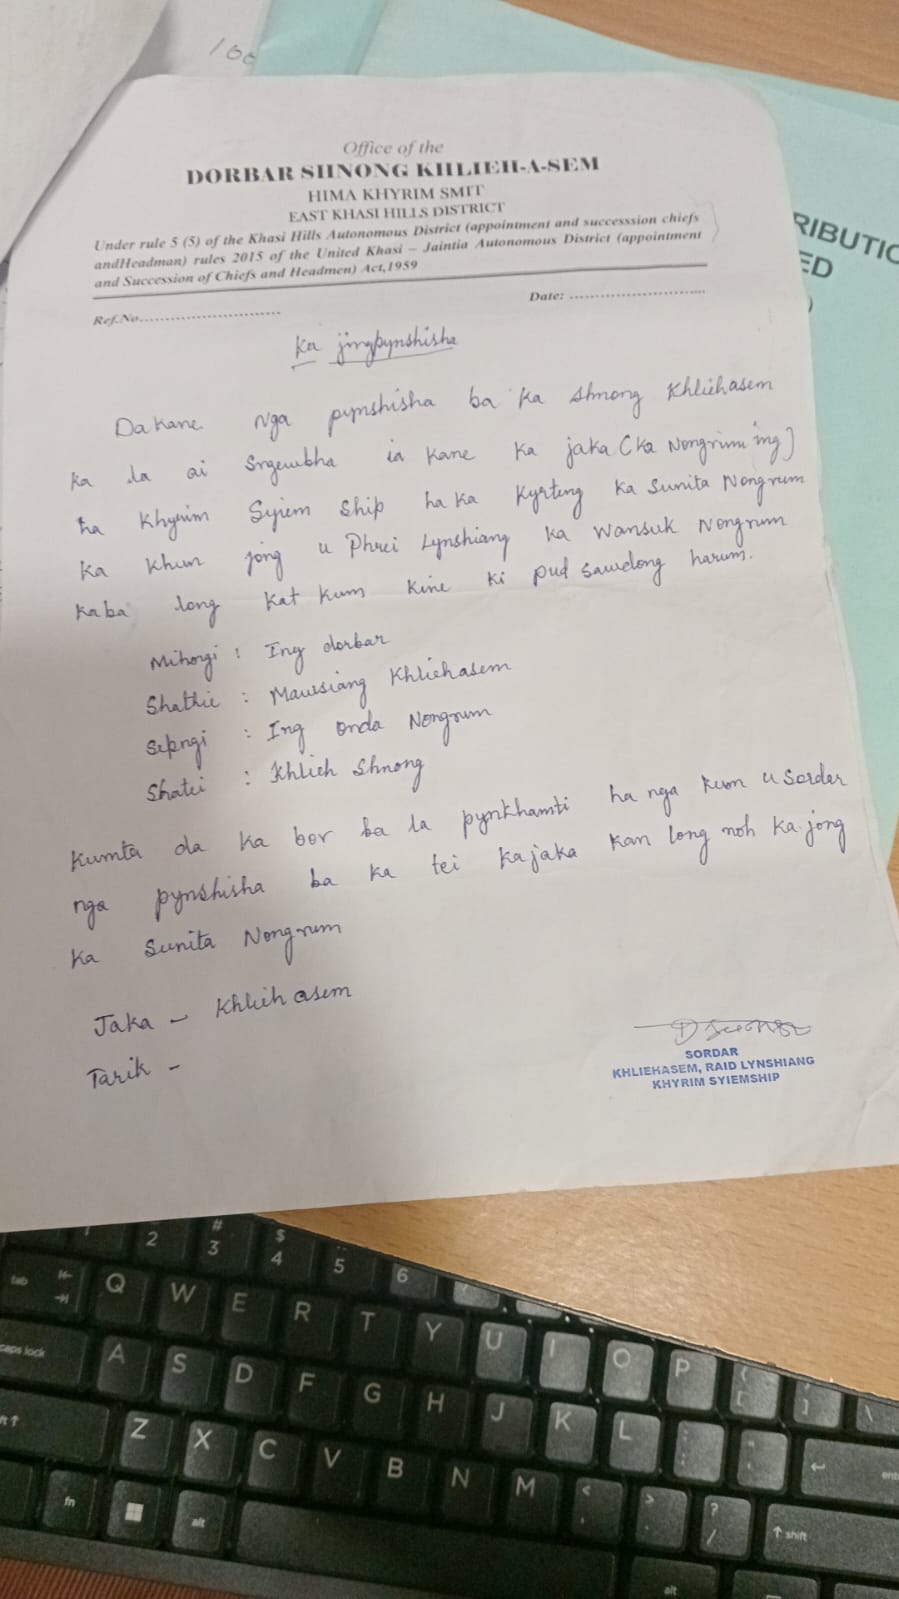 100
Office of the
DORBAR SHNONG KHLIEH-A-SEM
HIMA KHYRIM SMIT
EAST KHASI HILLS DISTRICT
Under rule 5 (5) of the Khasi Hills Autonomous District (appointment and successsion chiefs
andHeadman) rules 2015 of the United Khasi – Jaintia Autonomous District (appointment
and Succession of Chiefs and Headmen) Act,1959
Ref.No............................
Date: ............................
RIBUTIO
ED
)
Ka jingpynshisha
Da kane nga pynshisha ba ka shnong Khliehasem
ka la ai ia kane ka jaka (ka Nongrim ing)
ha Khyrim Syiem Ship ha ka Kyrteng ka Sunita Nongrum
ka khun jong u Phrei Lynshiang ka Wansuk Nongrum
kaba long kat kum kine ki pud sawdong harum.
Mihngi : Ing dorbar
Shathie : Mawsiang Khliehasem
Sepngi : Ing onda Nongrum
Shatei : Khlieh Shnong
Kumta da ka bor ba la pynkhamti ha nga kum u Sordar
nga pynshisha ba ka tei kajaka kan long noh ka jong
ka Sunita Nongrum
Jaka - Khlieh asem
Tarik -
SORDAR
KHLIEHASEM, RAID LYNSHIANG
KHYRIM SYIEMSHIP
# $
2 3 4 5 6
tab Q W E R T Y U I O P { [ } ] \
caps lock A S D F G H J K L : ; " ' enter
Z X C V B N M < , > . ? / shift
fn alt alt